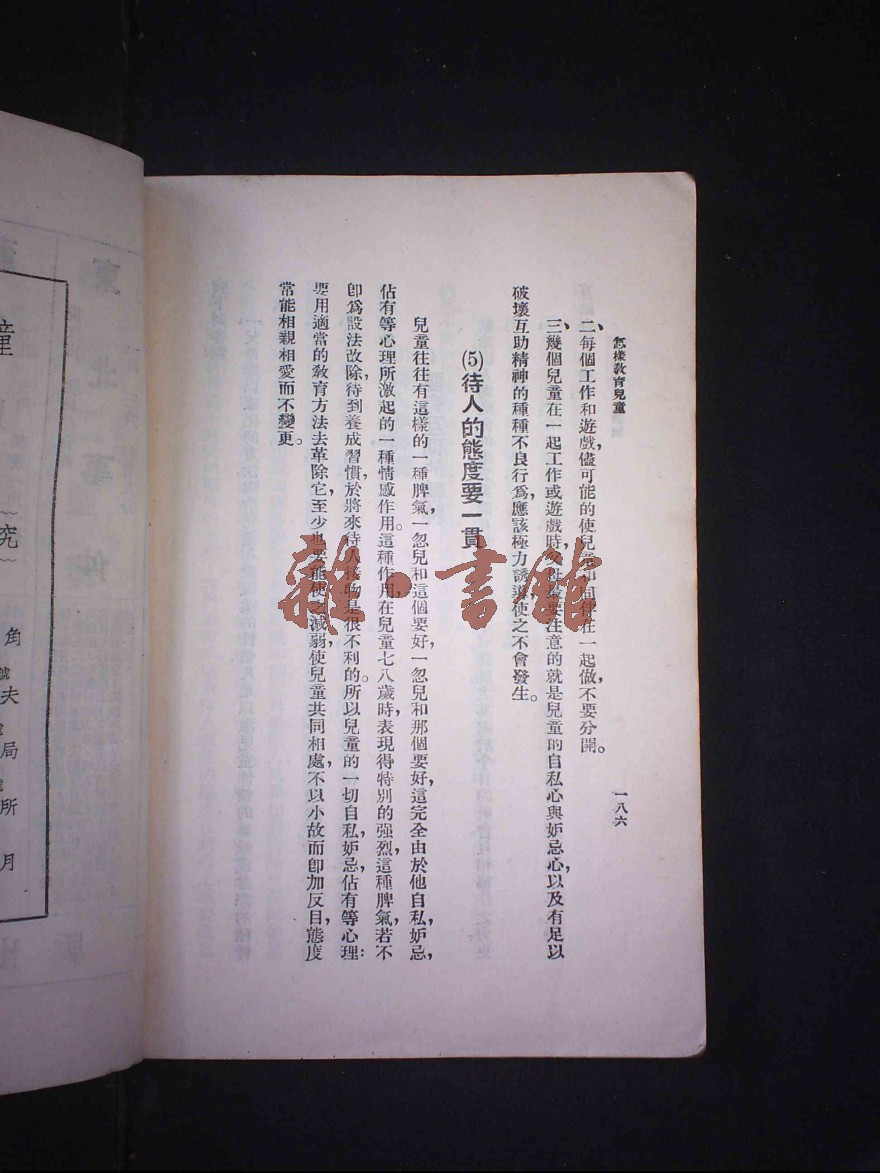 怎樣教育兒童
一八六
二、每個工作和遊戲，儘可能的使兒童和同伴在一起做，不要分開。
三、幾個兒童在一起工作或遊戲時，父母最要注意的就是兒童的自私心與妒忌心，以及有足以
破壞互助精神的種種不良行爲，應該極力誘導，使之不會發生。
(5)待人的態度要一貫
兒童往往有這樣的一種脾氣，一忽兒和這個要好，一忽兒和那個要好，這完全由於他自私，妒忌，
佔有等心理所激起的一種情感作用。這種作用，在兒童七八歲時，表現得特別的強烈，這種脾氣若不
卽爲設法改除，待到養成習慣，於將來待人接物，是很不利的。所以兒童的一切自私，妒忌，佔有等心理：
要用適當的敎育方法去革除它，至少也要能使之減弱，使兒童共同相處，不以小故而卽加反目，態度
常能相親相愛而不變更。
雜·書館
究
角
夫
局
所
月